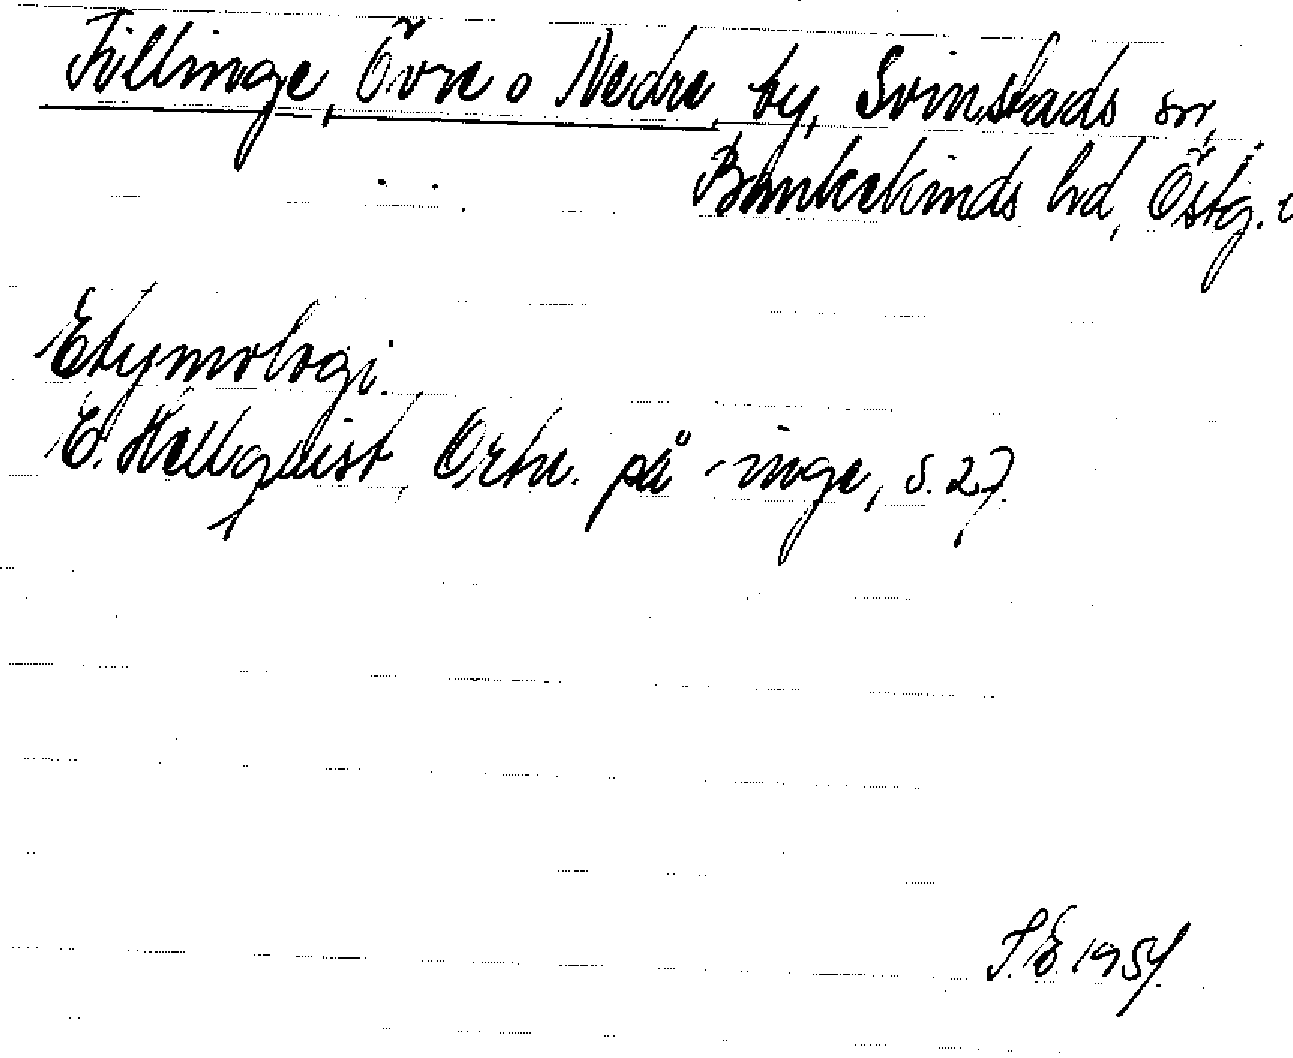 Fillinge, Övre o Nedre, by, Svinstads sn,
Bankekinds hd, Östg.
Etymologi.
E. Hellquist, Ortn. på -inge, s. 27.
S.E. 1954.